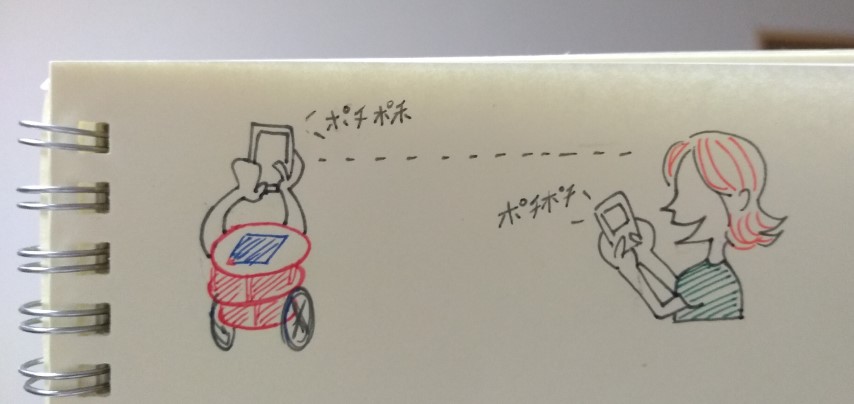 ポチポチ
ポチポチ